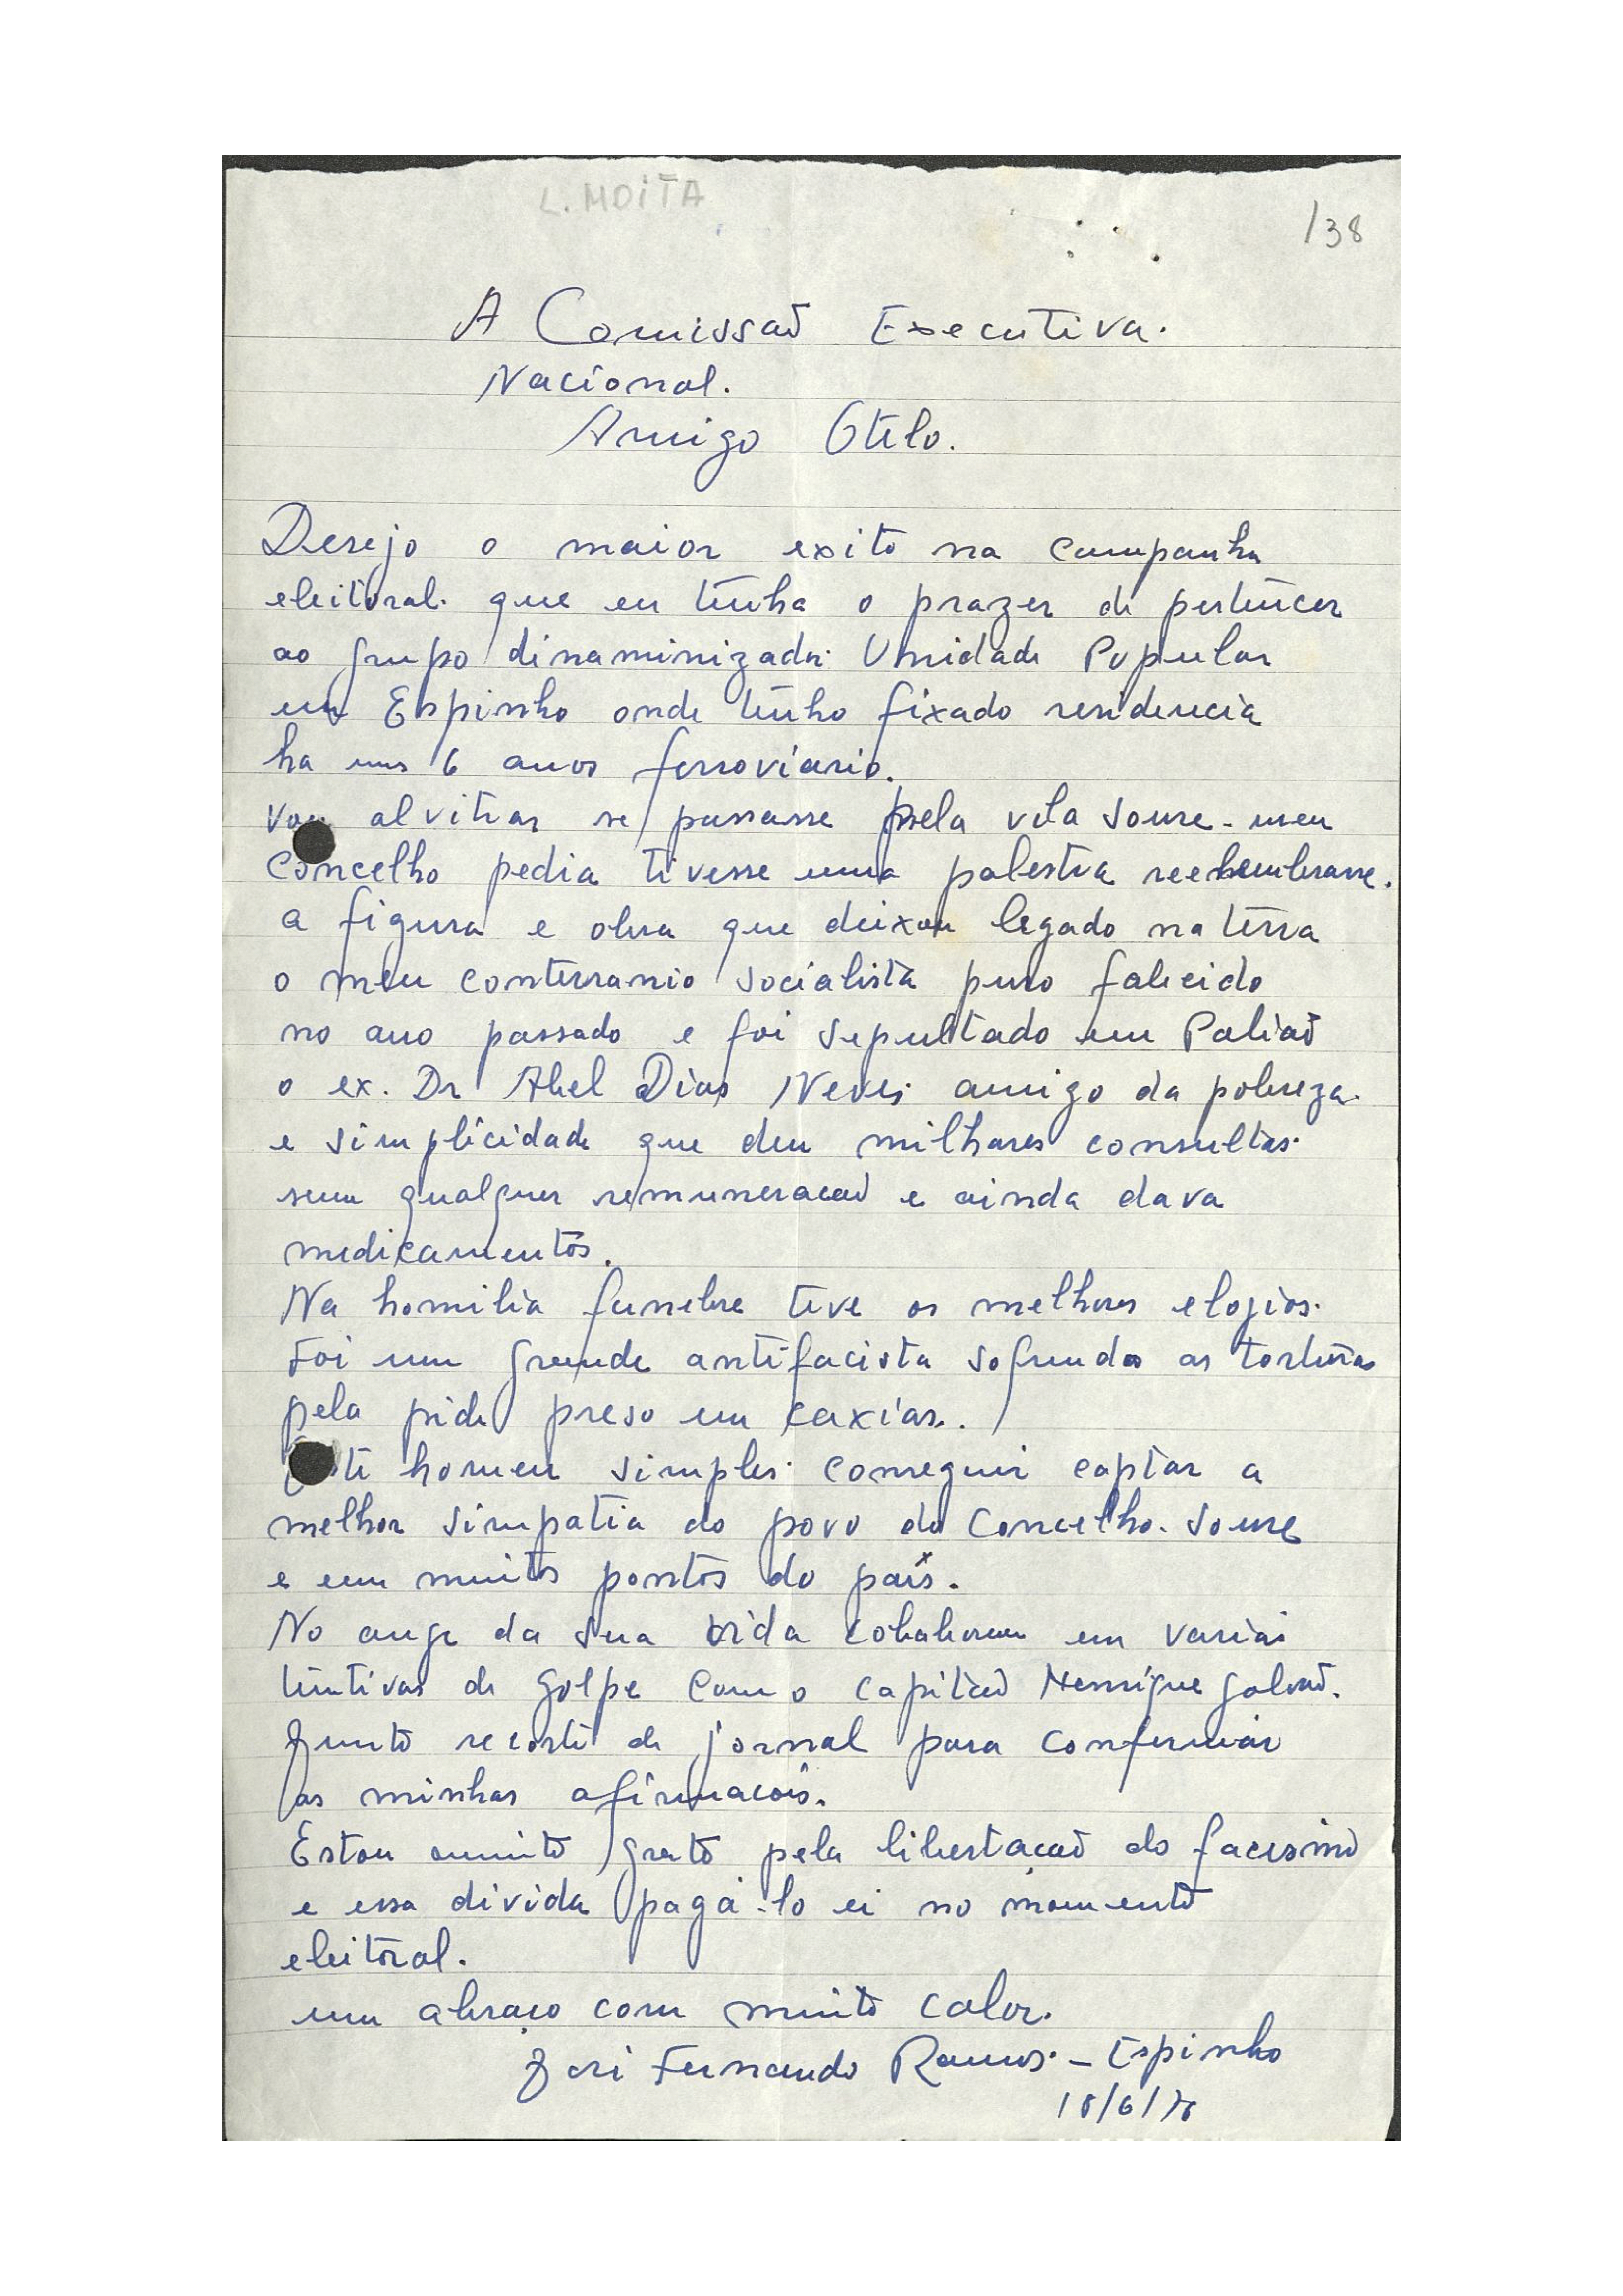 L. MOITA
138
A Comissaõ Executiva.
Nacional.
Amigo Otelo.
Desejo o maior exito na campanha
eleitoral. que eu tenha o prazer de pertencer
ao grupo dinaminizador Unidade Popular
em Espinho onde tenho fixado residencia
ha uns 6 anos ferroviario.
Vou alvitrar se passasse pela vila Soure - meu
Concelho pedia tivesse uma palestra
a figura e obra que deixou legado na terra
o meu conterranio socialista puro falecido
no ano passado e foi sepultado em Paliaõ
o ex. Dr Abel Dias Neves amigo da pobreza.
e simplicidade que deu milhares consultas.
sem qualquer remuneracaõ e ainda dava
medicamentos.
Na homilia funebre teve os melhores elogios.
Foi um grande antifacista sofrendo as torturas
pela pide preso em caxias.
Este homem simples. conseguir captar a
melhor simpatia do povo do Concelho. Soure
e em muitos pontos do país.
No auge da sua vida colaborou em varias
tentivas de golpe com o capitaõ Henrique galvaõ.
Junto recorte de jornal para confermar
as minhas afirmacois.
Estou muito grato pela libertaçaõ do facismo
e essa divida pagá-lo ei no momento
eleitoral.
um abraço com muito calor.
José Fernando Ramos. - Espinho
18/6/76